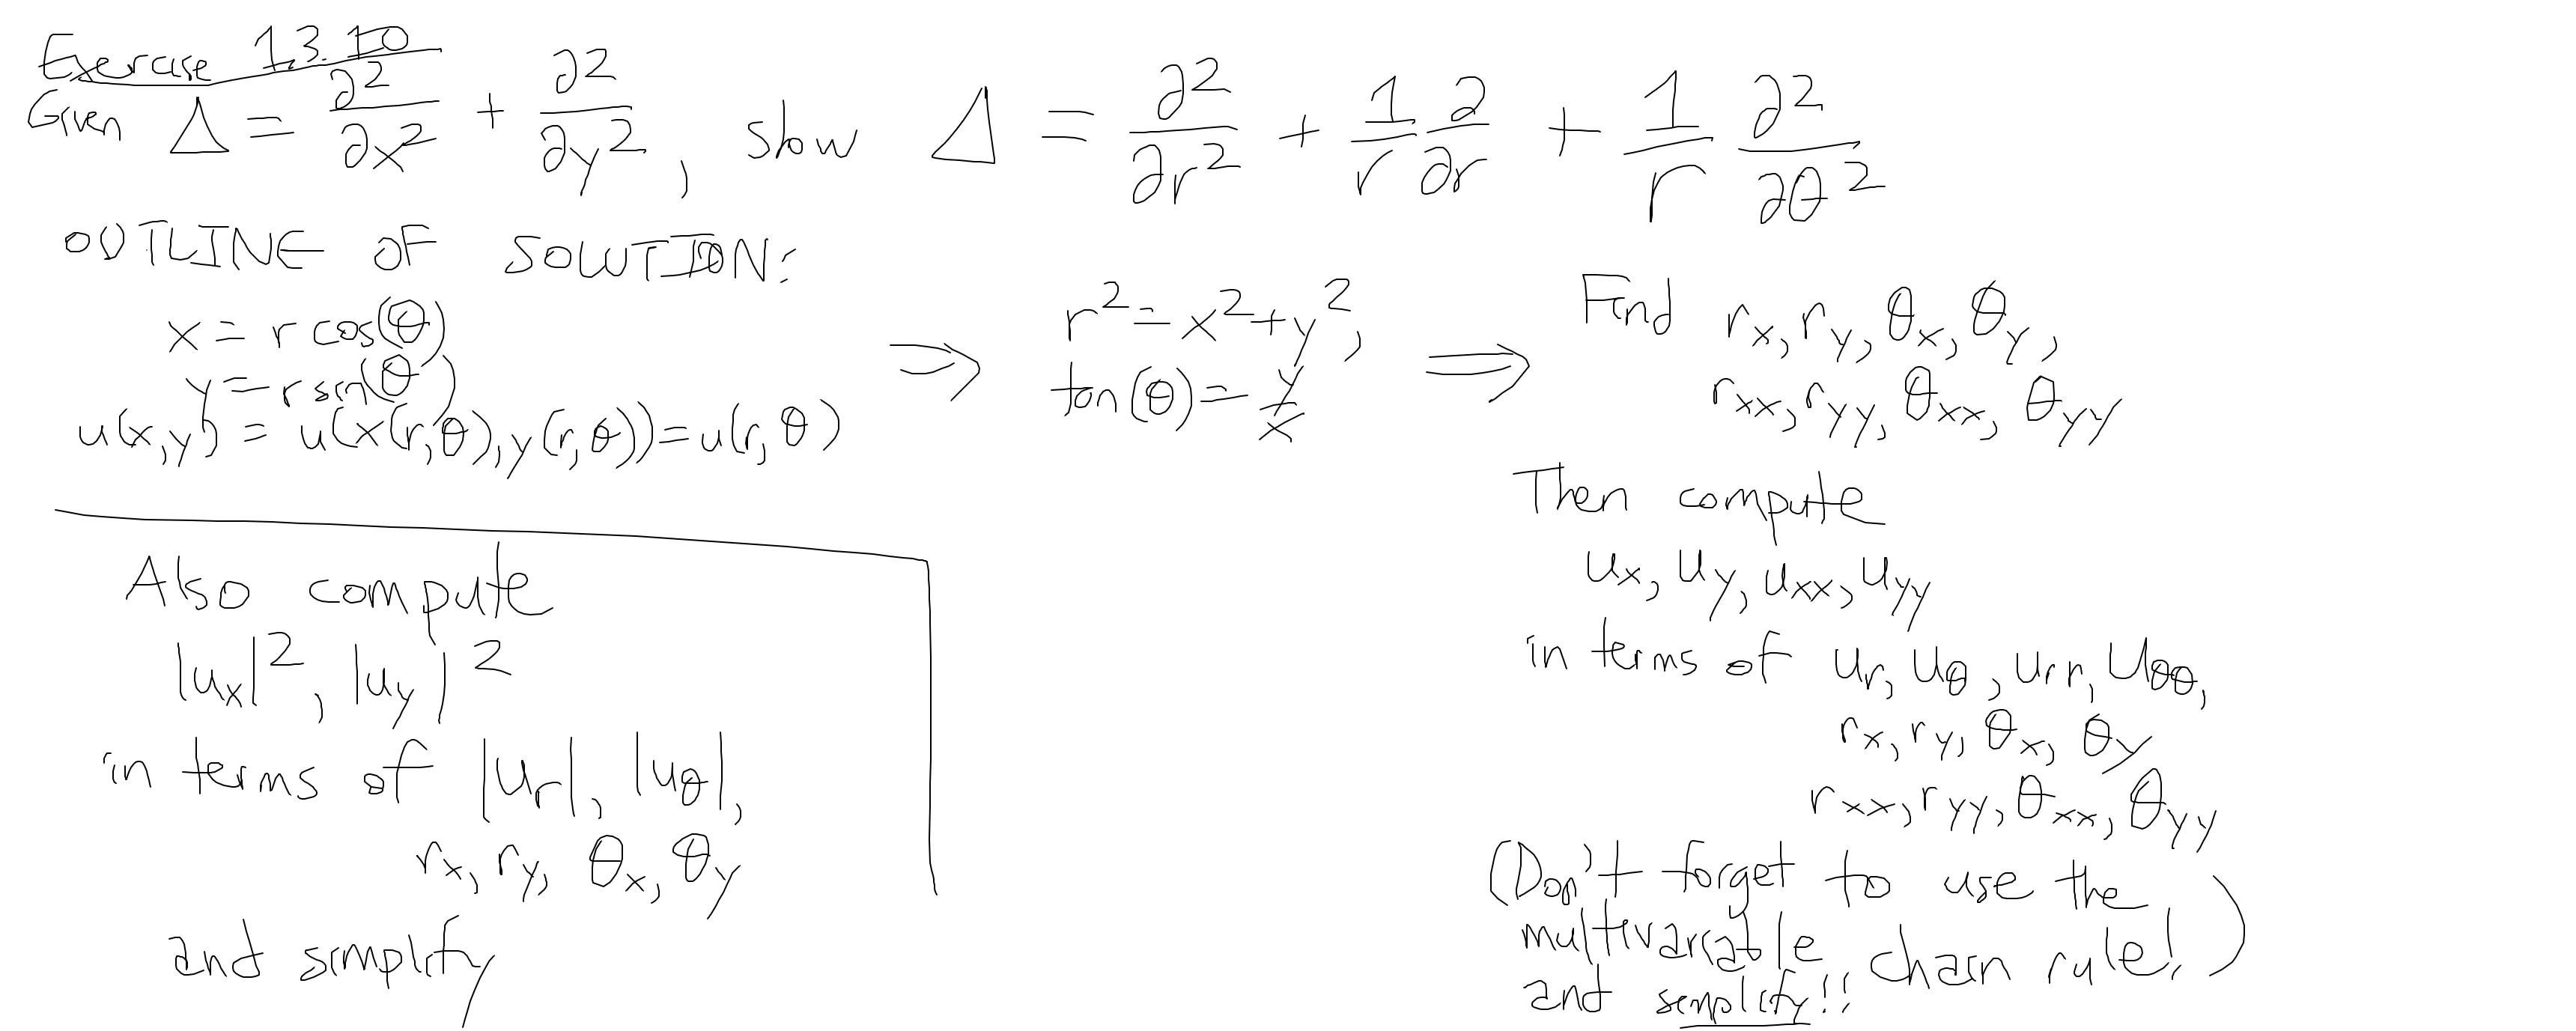 Exercise 1.3.10
Given Δ = ∂²/∂x² + ∂²/∂y², show Δ = ∂²/∂r² + 1/r ∂/∂r + 1/r ∂²/∂θ²
OUTLINE OF SOLUTION:
x = r cos(θ)
y = r sin(θ)
u(x,y) = u(x(r,θ),y(r,θ)) = u(r,θ)
⇒ r² = x² + y²,
tan(θ) = y/x
⇒ Find r_x, r_y, θ_x, θ_y,
r_xx, r_yy, θ_xx, θ_yy
Then compute
u_x, u_y, u_xx, u_yy
in terms of u_r, u_θ, u_rr, u_θθ,
r_x, r_y, θ_x, θ_y
r_xx, r_yy, θ_xx, θ_yy
(Don't forget to use the
multivariable chain rule!)
and simplify!!
Also compute
|u_x|², |u_y|²
in terms of |u_r|, |u_θ|,
r_x, r_y, θ_x, θ_y
and simplify